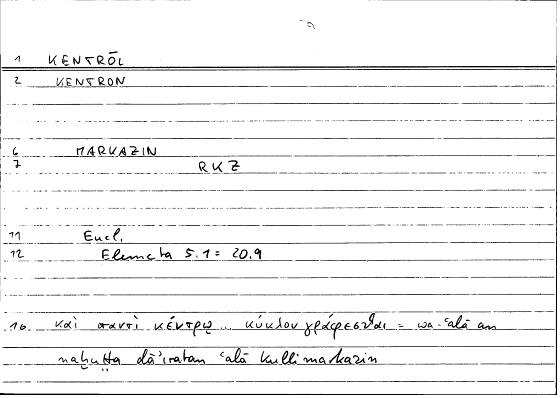 1 KENTRŌI
2 KENTRON
6 MARKAZIN
7 RKZ
11 Eucl.
12 Elementa 5.1 = 20.9
16 καὶ παντὶ κέντρῳ .. κύκλον γράφεσθαι = wa-ʿalā an
naḫuṭṭa dāʾiratan ʿalā kulli markazin